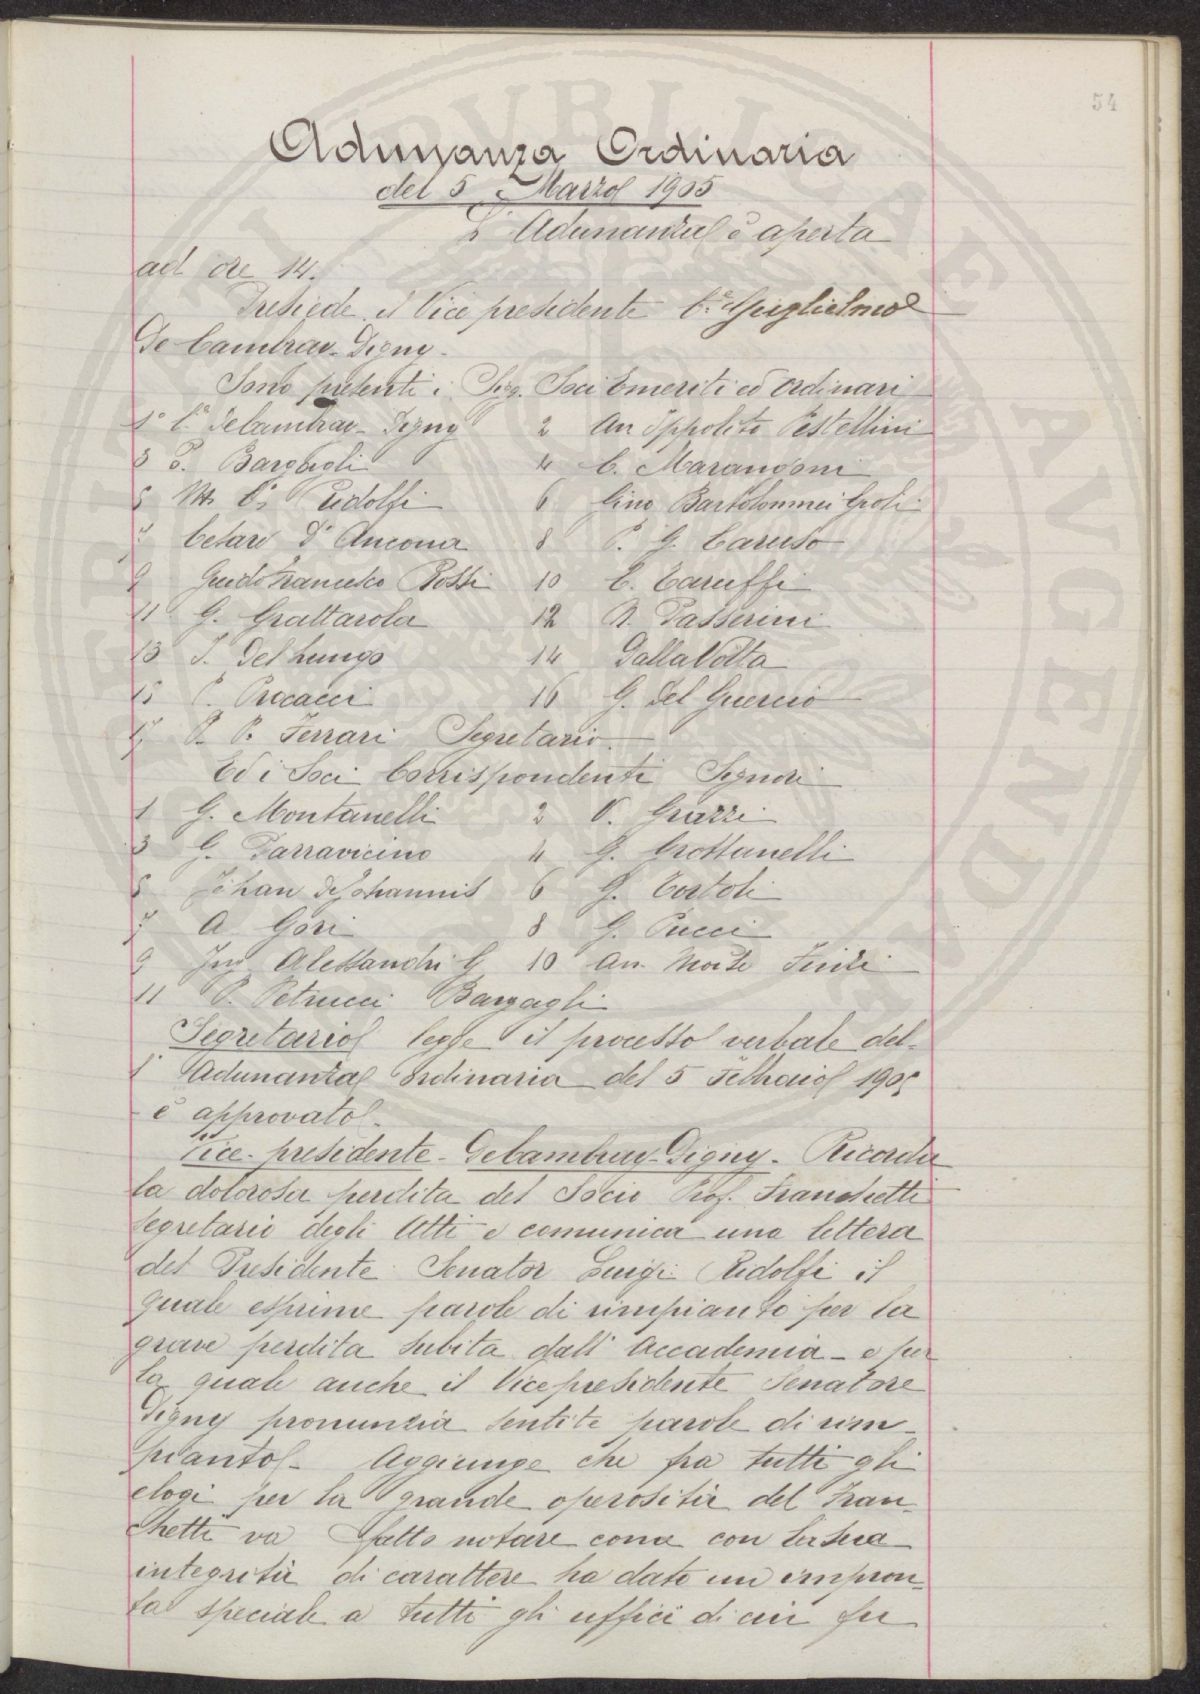 54
Adunanza Ordinaria
del 5 Marzo 1905
L'Adunanza è aperta
ad ore 14.
Presiede il Vice presidente C.te Guglielmo
De Cambray-Digny.
Sono presenti i Sigg. Soci Emeriti ed Ordinari
1° C.te DeCambray-Digny 2 Avv Ippolito Pestellini
3 P. Bargagli 4 C. Marangoni
5 Ms C. Ridolfi 6 Gino Bartolommei Gioli
7 Cesare D'Ancona 8 P. G. Caruso
9 Guido Francesco Rossi 10 C. Caruffi
11 G. Grattarola 12 N. Passerini
13 I. Del Lungo 14 Dalla Volta
15 P. Procacci 16 G. Del Guercio
17 P. P. Ferrari Segretario.
Ed i Soci Corrispondenti Signori
1 G. Montanelli 2 V. Grazzi
3 G. Parravicino 4 G. Grottanelli
5 Jehan DeJohannis 6 G. Tortoli
7 A Gori 8 G. Pucci
9 Ing Alessandri G 10 Avv
11 P. Petrucci Bargagli
Segretario legge il processo verbale del-
l'Adunanza ordinaria del 5 Febbraio 1905
è approvato.
Vice-presidente-DeCambray-Digny. Ricorda
la dolorosa perdita del Socio Prof. Franchetti
segretario degli Atti e comunica una lettera
del Presidente Senator Luigi Ridolfi il
quale esprime parole di rimpianto per la
grave perdita subita dall'Accademia - e per
la quale anche il Vicepresidente Senatore
Digny pronunzia sentite parole di rim-
pianto. Aggiunge che fra tutti gli
elogi per la grande operosità del Fran-
chetti va fatto notare come con la sua
integrità di carattere ha dato un impron-
ta speciale a tutti gli uffici di cui fu
PUBLICAE AUGENDAE